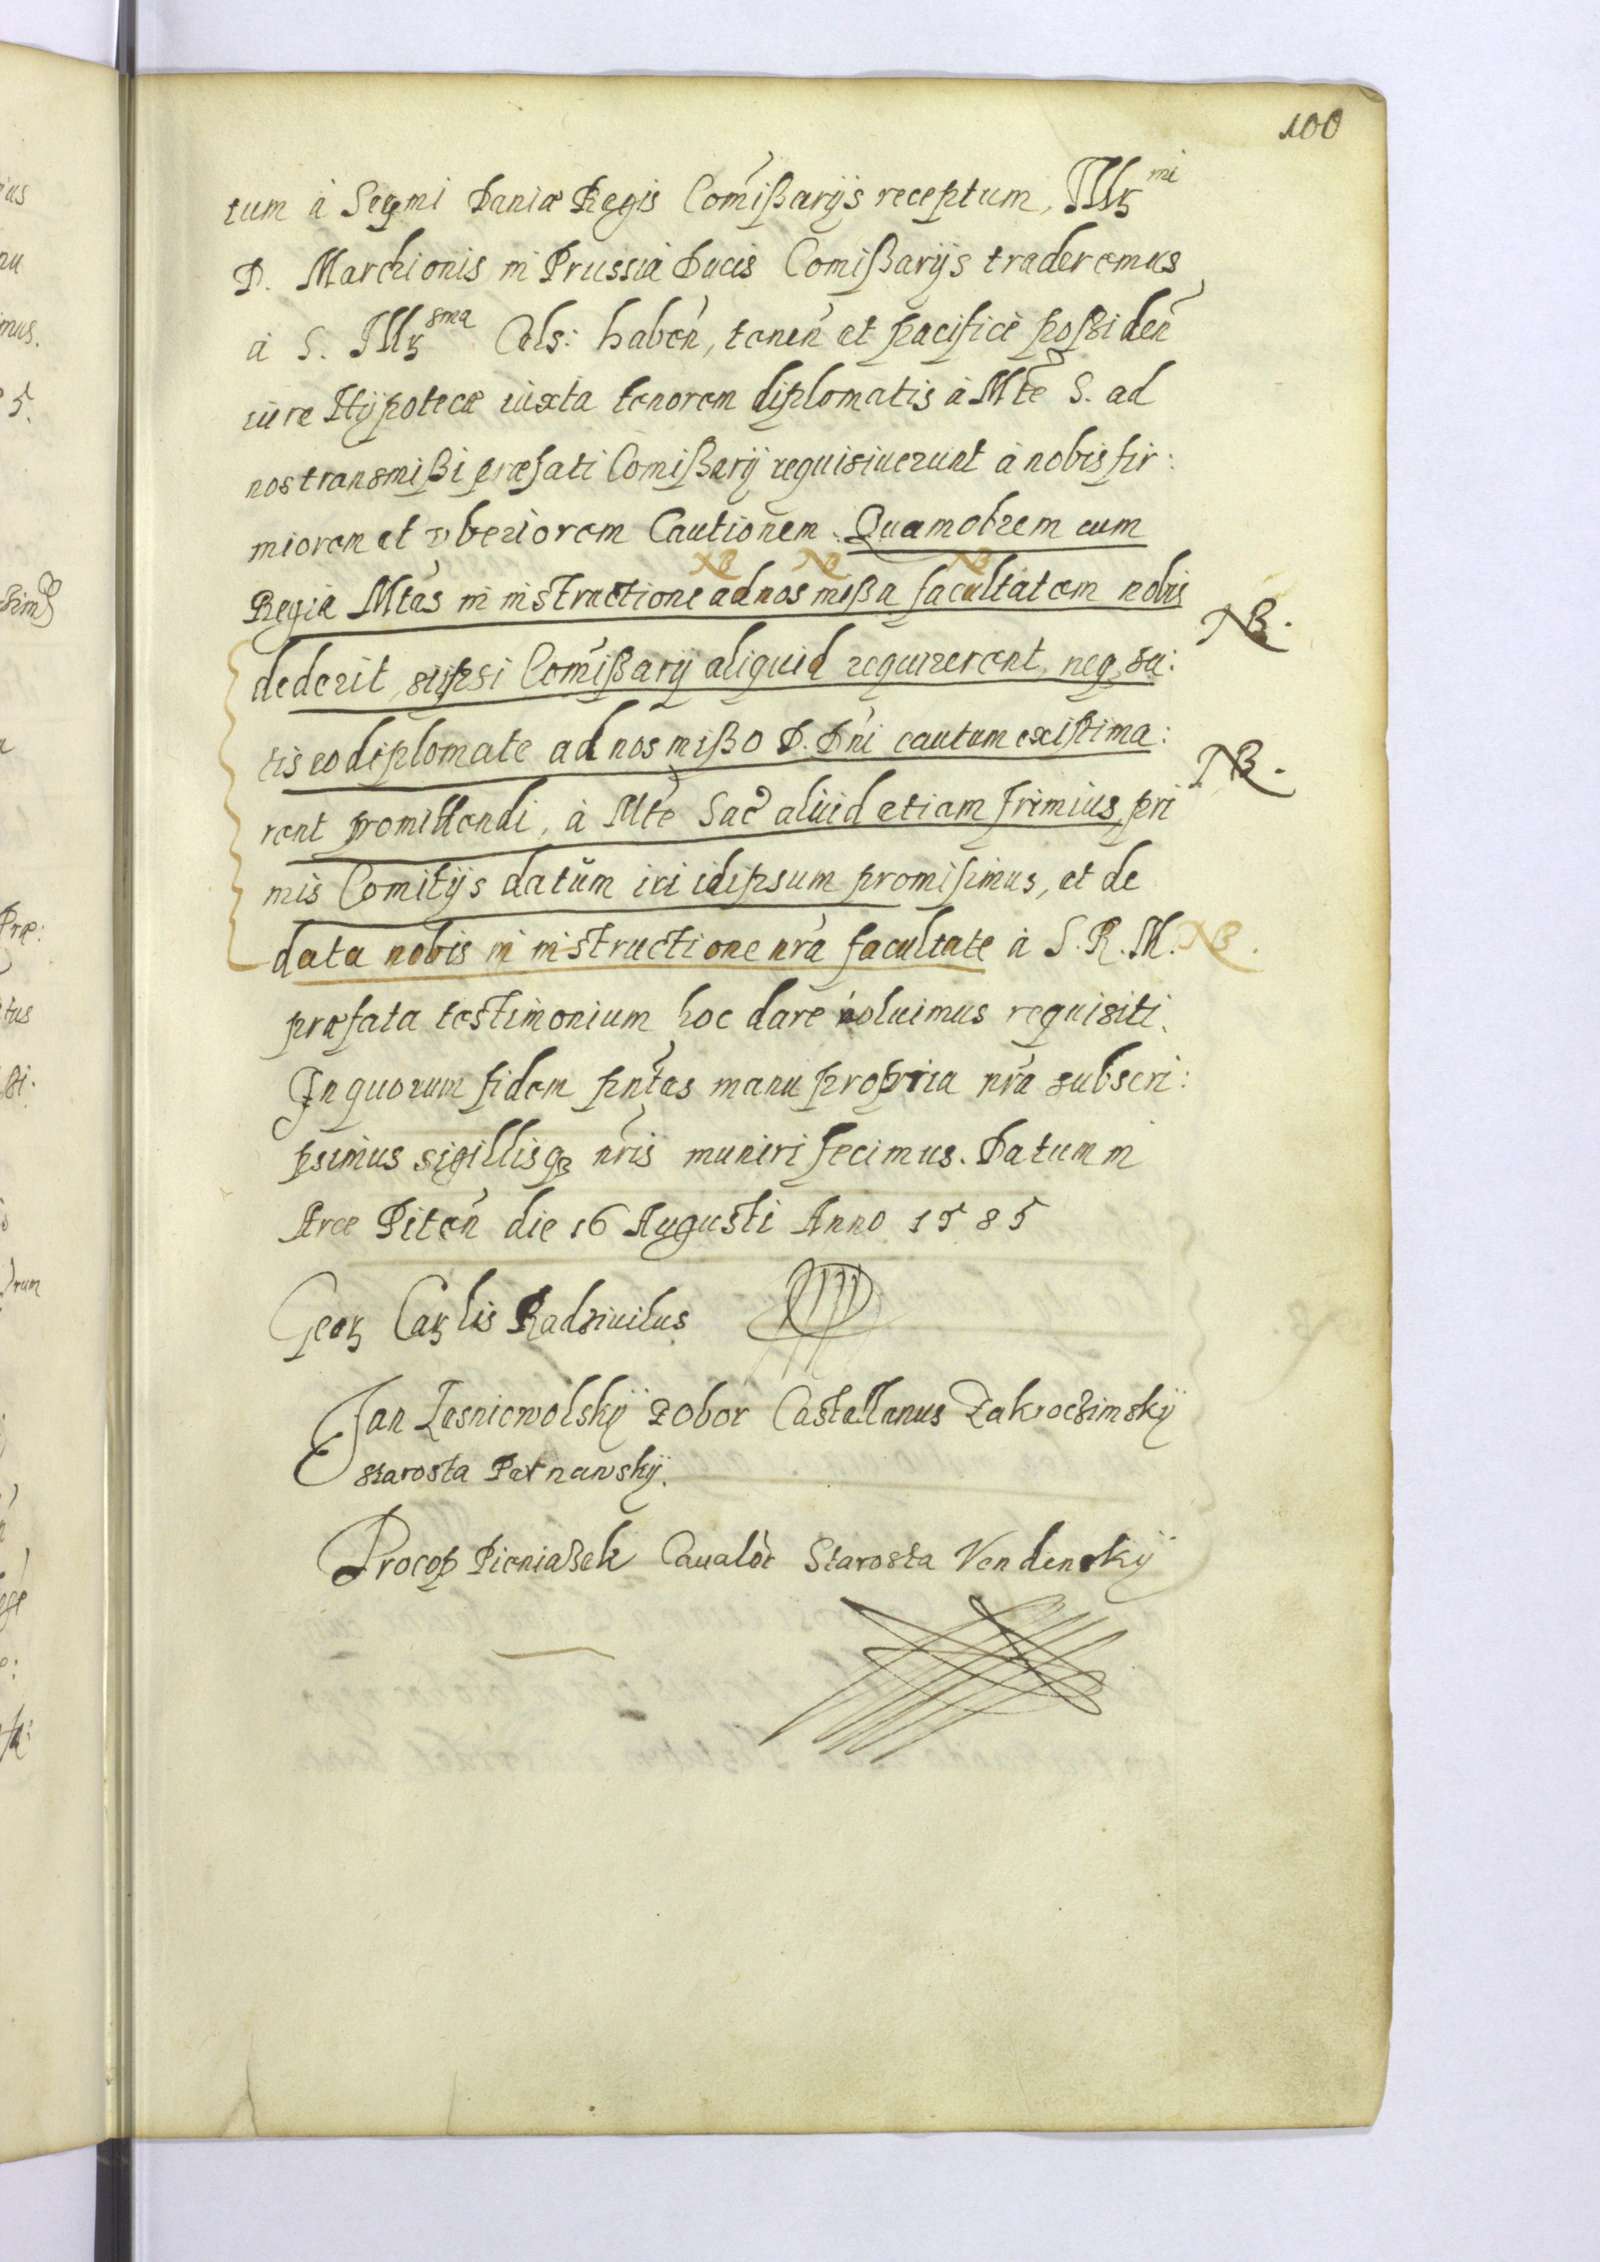 100
tum à Sermi Daniæ Regis Comißarijs receptum, Illr mi
D. Marchionis in Prussia Ducis Comißarijs traderemus
à S. Illr sma Cels: haben, tenen et pacificè poßiden
iure Hypotecæ iuxta tenorem diplomatis à Mte S. ad
nos transmißi præfati Comißarij requisiuerunt à nobis fir:
miorem et vberiorem Cautionem. Quamobrem cum
NB NB NB
Regia Mtas in instructione ad nos mißa facultatem nobis
NB.
dederit, si ipsi Comißarij aliquid requirerent, neq sa:
tis eo diplomate ad nos mißo D. Dni cautum existima:
NB.
rent promittendi, à Mte Sac aliud etiam firmius, pri
mis Comitijs datum iri idipsum promisimus, et de
data nobis in instructione nra facultate à S. R. M. NB.
præfata testimonium hoc dare voluimus requisiti.
In quorum fidem pntas manu propria nra subscri:
psimus sigillisq nris muniri fecimus. Datum in
Arce Piten die 16 Augusti Anno 1585
Geor Carlis Radziuilus
Jan Lesniewolskij Zobor Castellanus Zakroczimskij
starosta Parnawskij.
Procop Pieniaßek Caualer Starosta Vendenskij